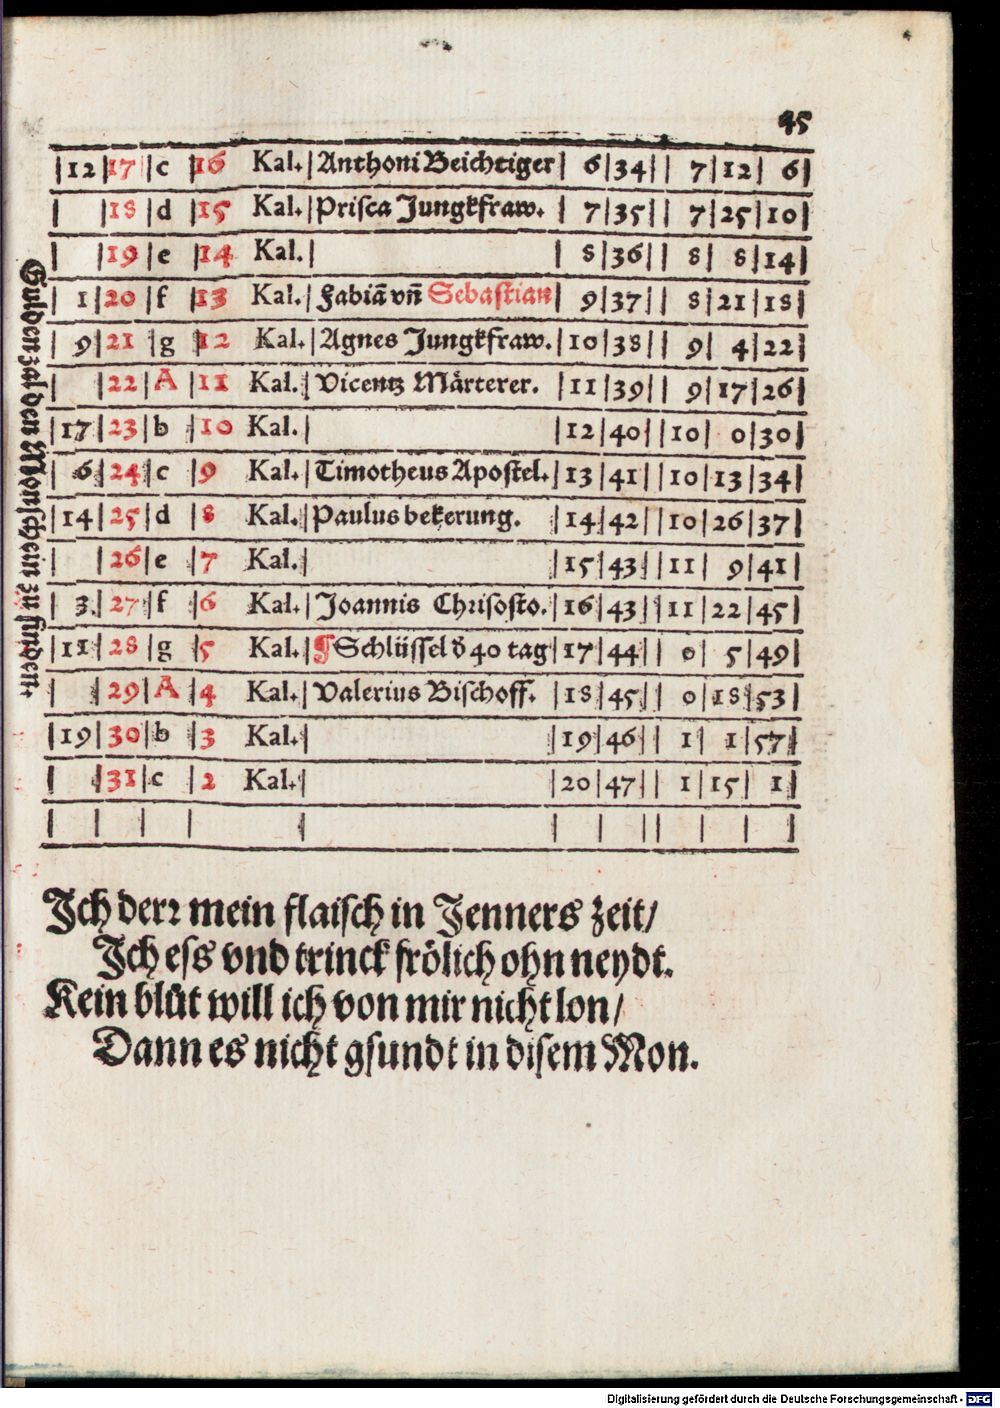 45
|12|17|c |16 Kal.|Anthoni Beichtiger| 6|34|| 7|12| 6|
| |18|d |15 Kal.|Prisca Jungkfraw.| 7|35|| 7|25|10|
| |19|e |14 Kal.| | 8|36|| 8| 8|14|
| 1|20|f |13 Kal.|Fabiā vñ Sebastian| 9|37|| 8|21|18|
| 9|21|g |12 Kal.|Agnes Jungkfraw.|10|38|| 9| 4|22|
| |22|A |11 Kal.|Vicentz Mårterer.|11|39|| 9|17|26|
|17|23|b |10 Kal.| |12|40||10| 0|30|
| 6|24|c |9 Kal.|Timotheus Apostel.|13|41||10|13|34|
|14|25|d |8 Kal.|Paulus bekerung.|14|42||10|26|37|
| |26|e |7 Kal.| |15|43||11| 9|41|
| 3|27|f |6 Kal.|Joannis Chrisosto.|16|43||11|22|45|
|11|28|g |5 Kal.|¶Schlüssel ð 40 tag|17|44|| 0| 5|49|
| |29|A |4 Kal.|Valerius Bischoff.|18|45|| 0|18|53|
|19|30|b |3 Kal.| |19|46|| 1| 1|57|
| |31|c |2 Kal.| |20|47|| 1|15| 1|
Gulden zal den Monschein zu finden.
Ich derr mein flaisch in Jenners zeit/
Ich ess vnd trinck frölich ohn neydt.
Kein blůt will ich von mir nicht lon/
Dann es nicht gsundt in disem Mon.
Digitalisierung gefördert durch die Deutsche Forschungsgemeinschaft - DFG